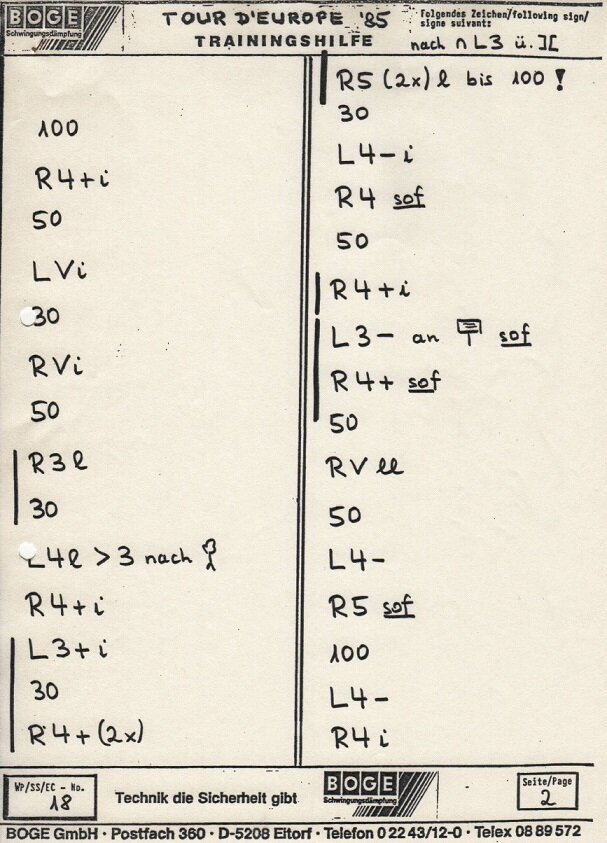 BOGE
Schwingungsdämpfung
TOUR D'EUROPE '85
TRAININGSHILFE
Folgendes Zeichen/following sign/
signe suivante
nach ∩ L3 ü. ][
100
R4+i
50
LVi
30
RVi
50
R3l
30
L4l > 3 nach
R4+i
L3+i
30
R4+(2x)
R5 (2x) l bis 100 !
30
L4-i
R4 sof
50
R4+i
L3- an sof
R4+ sof
50
RV ll
50
L4-
R5 sof
100
L4-
R4i
WP/SS/EC - No.
18
Technik die Sicherheit gibt
BOGE
Schwingungsdämpfung
Seite/Page
2
BOGE GmbH · Postfach 360 · D-5208 Eitorf · Telefon 0 22 43/12-0 · Telex 08 89 572